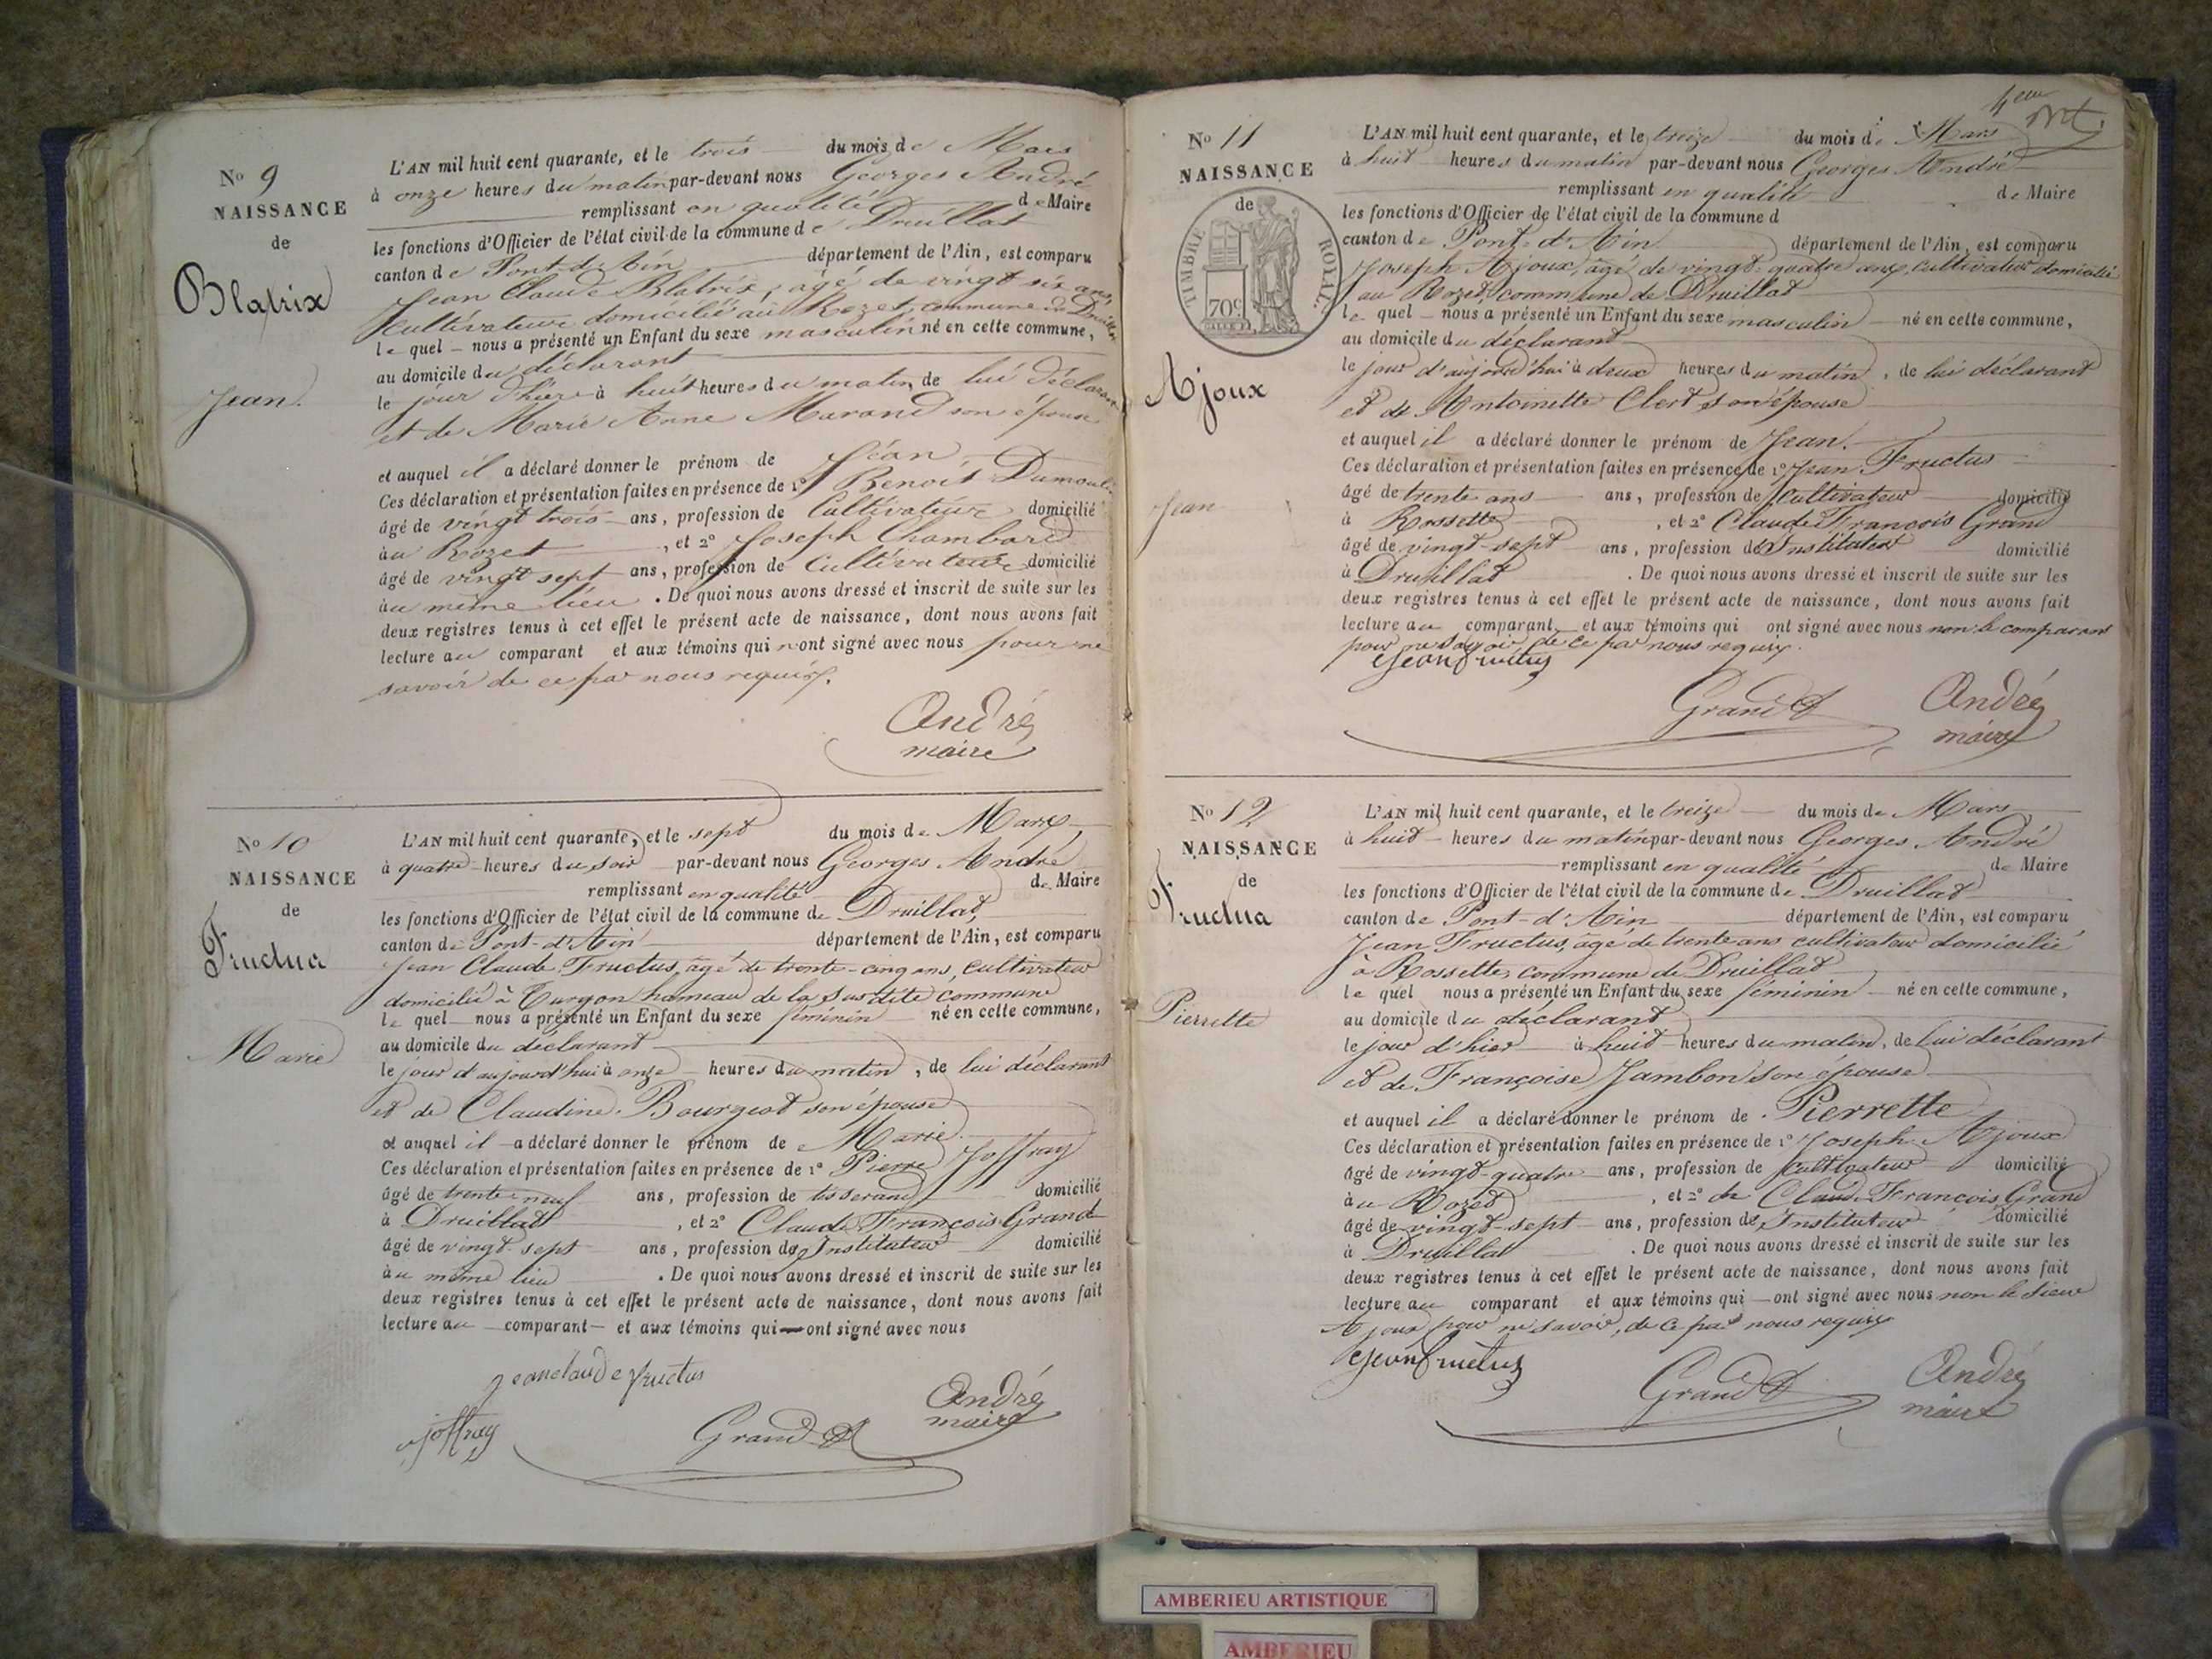 N° 9
NAISSANCE
de
Blatrix
Jean.
L'AN mil huit cent quarante, et le trois du mois de Mars
à onze heures du matin par-devant nous Georges André
remplissant en qualité de Maire
les fonctions d'Officier de l'état civil de la commune de Druillat
canton de Pont-d'Ain département de l'Ain, est comparu
Jean Claude Blatrix, âgé de vingt six ans,
cultivateur domicilié au Rozet, commune de Druillat
le quel nous a présenté un Enfant du sexe masculin né en cette commune,
au domicile du déclarant
le jour d'hier à huit heures du matin, de lui déclarant
et de Marie Anne Marand son épouse
et auquel il a déclaré donner le prénom de Jean.
Ces déclaration et présentation faites en présence de 1° Benoit Dumoulin
âgé de vingt trois ans, profession de Cultivateur domicilié
au Rozet, et 2° Joseph Chambard
âgé de vingt sept ans, profession de Cultivateur domicilié
au même lieu. De quoi nous avons dressé et inscrit de suite sur les
deux registres tenus à cet effet le présent acte de naissance, dont nous avons fait
lecture au comparant et aux témoins qui n'ont signé avec nous pour ne
savoir de ce par nous requis.
André
maire
N° 10
NAISSANCE
de
Fructus
Marie
L'AN mil huit cent quarante, et le sept du mois de Mars,
à quatre heures du soir par-devant nous Georges André
remplissant en qualité de Maire
les fonctions d'Officier de l'état civil de la commune de Druillat,
canton de Pont-d'Ain département de l'Ain, est comparu
Jean Claude Fructus, âgé de trente-cinq ans, cultivateur
domicilié à Turgon hameau de la susdite commune
le quel nous a présenté un Enfant du sexe féminin né en cette commune,
au domicile du déclarant
le jour d'aujourd'hui à onze heures du matin, de lui déclarant
et de Claudine Bourgeot son épouse
et auquel il a déclaré donner le prénom de Marie.
Ces déclaration et présentation faites en présence de 1° Pierre Joffray
âgé de trente-neuf ans, profession de tisserand domicilié
à Druillat, et 2° Claude François Grand
âgé de vingt-sept ans, profession d'Instituteur domicilié
au même lieu. De quoi nous avons dressé et inscrit de suite sur les
deux registres tenus à cet effet le présent acte de naissance, dont nous avons fait
lecture au comparant et aux témoins qui ont signé avec nous
jeanclaude fructus
joffray
Grand
André
maire
N° 11
NAISSANCE
de
TIMBRE ROYAL
70c
Ajoux
Jean
L'AN mil huit cent quarante, et le treize du mois de Mars
à huit heures du matin par-devant nous Georges André
remplissant en qualité de Maire
les fonctions d'Officier de l'état civil de la commune d
canton de Pont-d'Ain département de l'Ain, est comparu
Joseph Ajoux, âgé de vingt-quatre ans, cultivateur domicilié
au Rozet, commune de Druillat
le quel nous a présenté un Enfant du sexe masculin né en cette commune,
au domicile du déclarant
le jour d'aujourd'hui à deux heures du matin, de lui déclarant
et de Antoinette Clert son épouse
et auquel il a déclaré donner le prénom de Jean.
Ces déclaration et présentation faites en présence de 1° Jean Fructus
âgé de trente ans ans, profession de Cultivateur domicilié
à Rossette, et 2° Claude François Grand
âgé de vingt-sept ans, profession d'Instituteur domicilié
à Druillat. De quoi nous avons dressé et inscrit de suite sur les
deux registres tenus à cet effet le présent acte de naissance, dont nous avons fait
lecture au comparant et aux témoins qui ont signé avec nous non le comparant
pour ne savoir, de ce par nous requis.
Jean fructus
Grand
André
maire
N° 12
NAISSANCE
de
Fructus
Pierrette
L'AN mil huit cent quarante, et le treize du mois de Mars
à huit heures du matin par-devant nous Georges André
remplissant en qualité de Maire
les fonctions d'Officier de l'état civil de la commune de Druillat
canton de Pont-d'Ain département de l'Ain, est comparu
Jean Fructus, âgé de trente ans cultivateur domicilié
à Rossette, commune de Druillat
le quel nous a présenté un Enfant du sexe féminin né en cette commune,
au domicile du déclarant
le jour d'hier à huit heures du matin, de lui déclarant
et de Françoise Jambon son épouse
et auquel il a déclaré donner le prénom de Pierrette
Ces déclaration et présentation faites en présence de 1° Joseph Ajoux
âgé de vingt-quatre ans, profession de Cultivateur domicilié
au Rozet, et 2° de Claude François Grand
âgé de vingt-sept ans, profession d'Instituteur domicilié
à Druillat. De quoi nous avons dressé et inscrit de suite sur les
deux registres tenus à cet effet le présent acte de naissance, dont nous avons fait
lecture au comparant et aux témoins qui ont signé avec nous non le sieur
Ajoux pour ne savoir, de ce par nous requis
Jean fructus
Grand
André
maire
AMBERIEU ARTISTIQUE
AMBERIEU